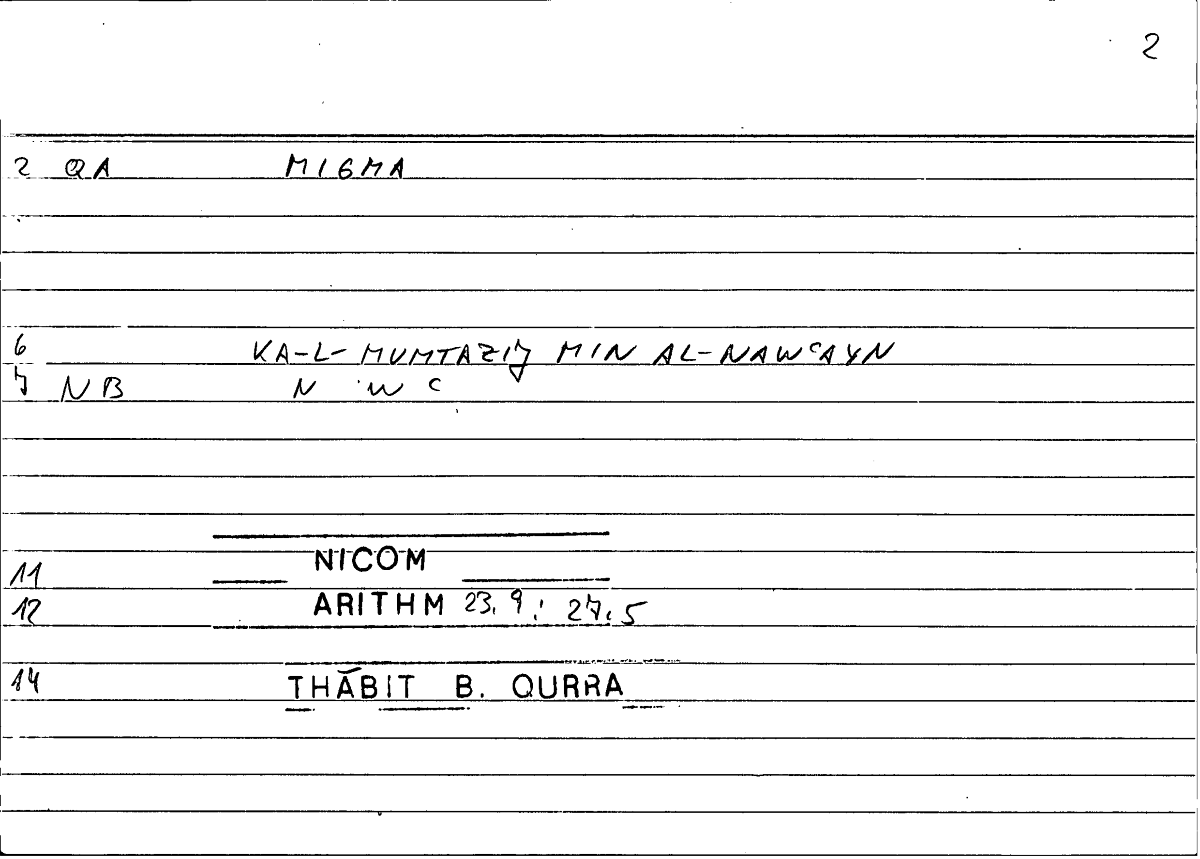 2
2 QA MIGMA
6 KA-L-MUMTAZIJ MIN AL-NAWᶜAYN
7 NB N W C
11 NICOM
12 ARITHM 23.9; 27.5
14 THĀBIT B. QURRA